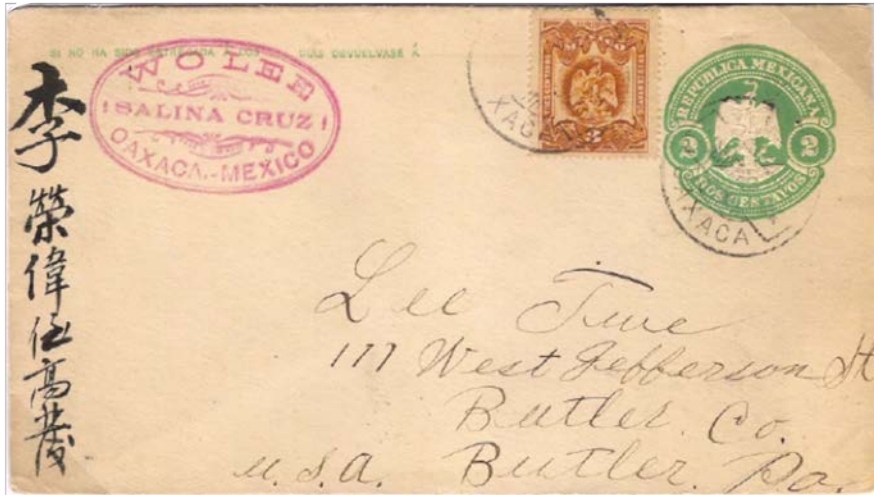 SI NO HA SIDO ENTREGADA Á LOS DIAS DEVUELVASE Á
WO LEE
SALINA CRUZ
OAXACA.-MEXICO
3
REPÚBLICA MEXICANA
2 2
DOS CENTAVOS
OAXACA
李榮偉侄高發
Lee
117 West Jefferson St
Butler. Co.
U.S.A. Butler. Pa.